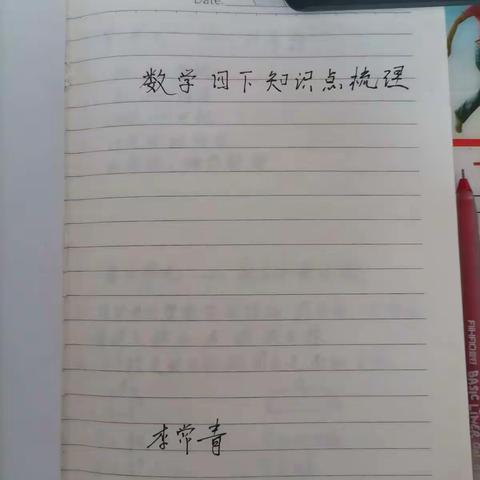 Date.
数学四下知识点梳理
李常青
BASIC LINER